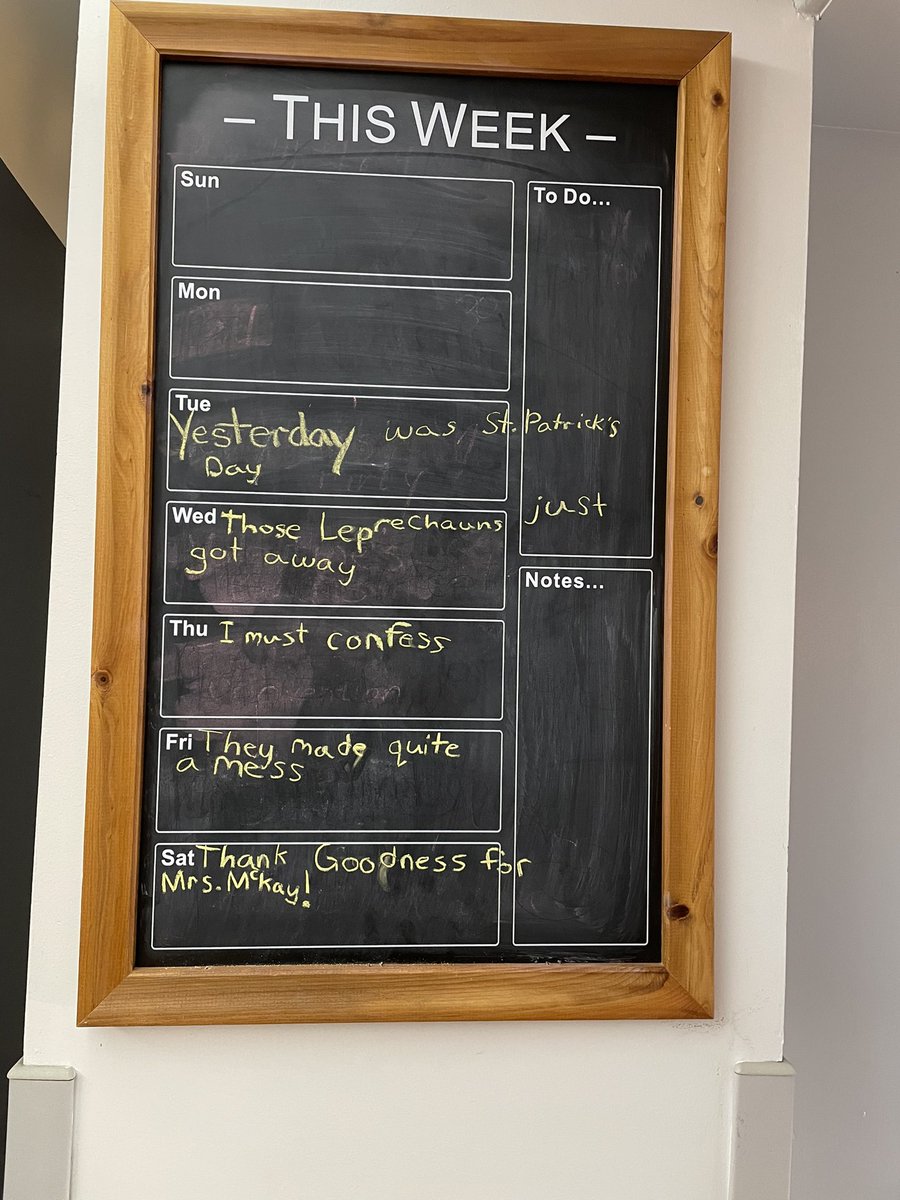 – THIS WEEK –
Sun
Mon
Tue
Yesterday was St. Patrick's
Day
Wed Those Leprechauns just
got away
Thu I must confess
Convention
Fri They made quite
a mess
Sat Thank Goodness for
Mrs. McKay!
To Do...
Notes...